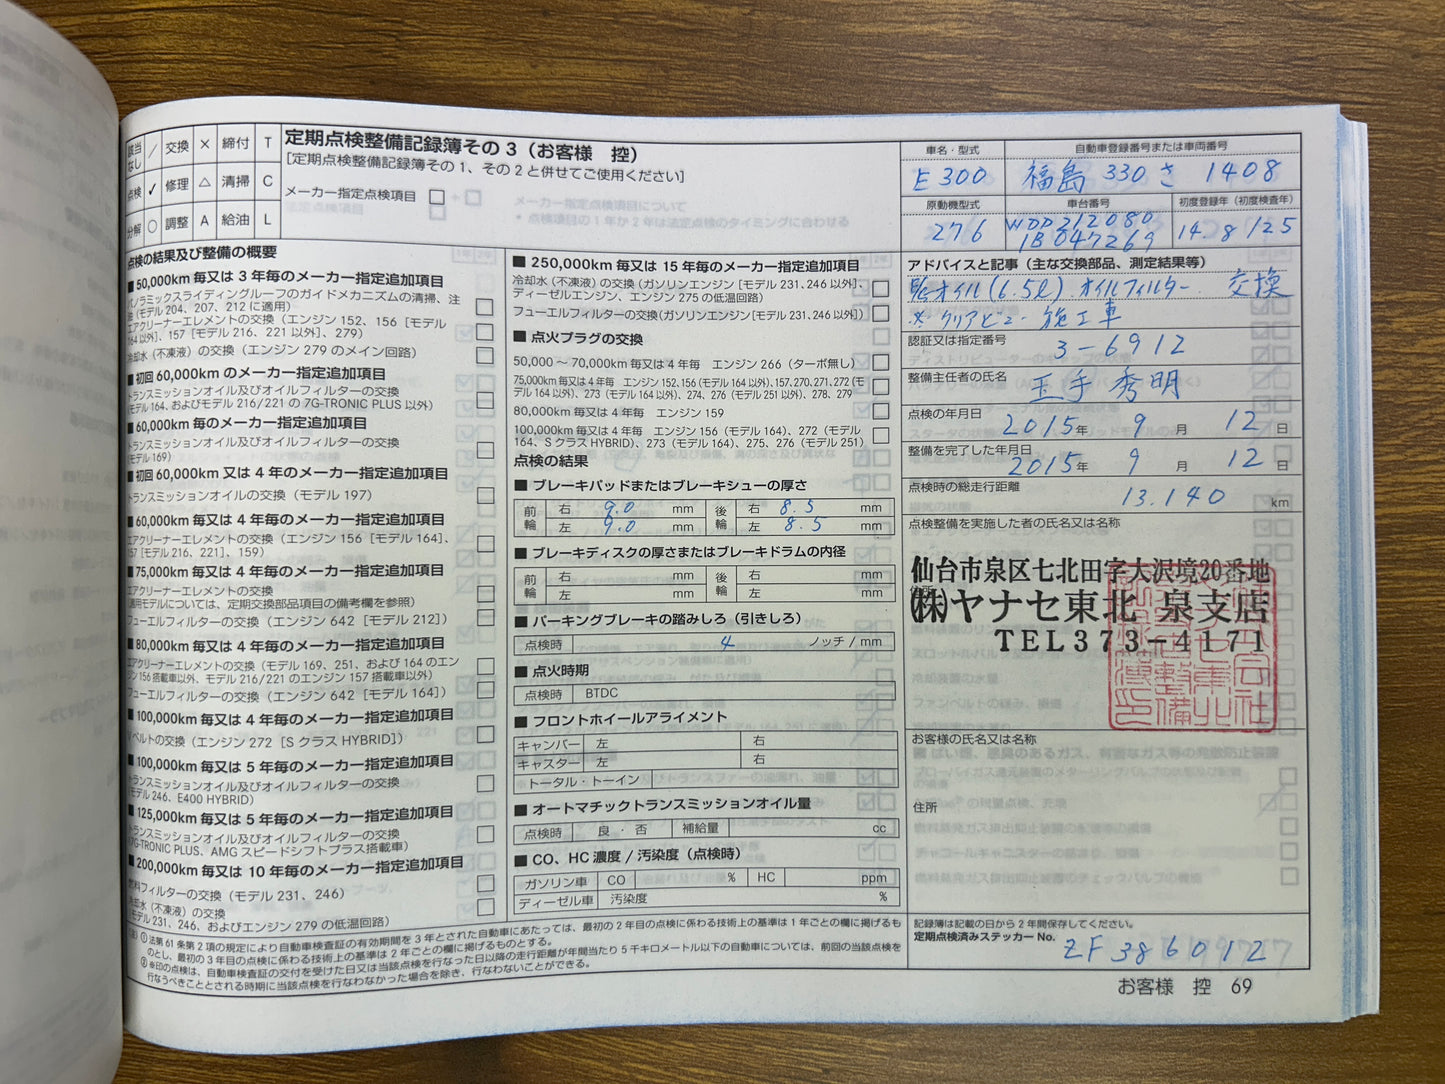 該当なし ／ 交換 × 締付 T
点検 ✓ 修理 △ 清掃 C
分解 ○ 調整 A 給油 L
定期点検整備記録簿その３（お客様　控）
［定期点検整備記録簿その１、その２と併せてご使用ください］
メーカー指定点検項目
点検の結果及び整備の概要
■ 50,000km 毎又は 3 年毎のメーカー指定追加項目
パノラミックスライディングルーフのガイドメカニズムの清掃、注
油（モデル 204、207、212 に適用）
エアクリーナーエレメントの交換（エンジン 152、156［モデル
164 以外］、157［モデル 216、221 以外］、279）
冷却水（不凍液）の交換（エンジン 279 のメイン回路）
■ 初回 60,000km のメーカー指定追加項目
トランスミッションオイル及びオイルフィルターの交換
（モデル 164、およびモデル 216/221 の 7G-TRONIC PLUS 以外）
■ 60,000km 毎のメーカー指定追加項目
トランスミッションオイル及びオイルフィルターの交換
（モデル 169）
■ 初回 60,000km 又は 4 年毎のメーカー指定追加項目
トランスミッションオイルの交換（モデル 197）
■ 60,000km 毎又は 4 年毎のメーカー指定追加項目
エアクリーナーエレメントの交換（エンジン 156［モデル 164］、
157［モデル 216、221］、159）
■ 75,000km 毎又は 4 年毎のメーカー指定追加項目
エアクリーナーエレメントの交換
（適用モデルについては、定期交換部品項目の備考欄を参照）
フューエルフィルターの交換（エンジン 642［モデル 212］）
■ 80,000km 毎又は 4 年毎のメーカー指定追加項目
エアクリーナーエレメントの交換（モデル 169、251、および 164 のエン
ジン 156 搭載車以外、モデル 216/221 のエンジン 157 搭載車以外）
フューエルフィルターの交換（エンジン 642［モデル 164］）
■ 100,000km 毎又は 4 年毎のメーカー指定追加項目
V ベルトの交換（エンジン 272［S クラス HYBRID］）
■ 100,000km 毎又は 5 年毎のメーカー指定追加項目
トランスミッションオイル及びオイルフィルターの交換
（モデル 246、E400 HYBRID）
■ 125,000km 毎又は 5 年毎のメーカー指定追加項目
トランスミッションオイル及びオイルフィルターの交換
（7G-TRONIC PLUS、AMG スピードシフトプラス搭載車）
■ 200,000km 毎又は 10 年毎のメーカー指定追加項目
燃料フィルターの交換（モデル 231、246）
冷却水（不凍液）の交換
（モデル 231、246、およびエンジン 279 の低温回路）
■ 250,000km 毎又は 15 年毎のメーカー指定追加項目
冷却水（不凍液）の交換（ガソリンエンジン［モデル 231、246 以外］、
ディーゼルエンジン、エンジン 275 の低温回路）
フューエルフィルターの交換（ガソリンエンジン［モデル 231、246 以外］）
■ 点火プラグの交換
50,000 ～ 70,000km 毎又は 4 年毎　エンジン 266（ターボ無し）
75,000km 毎又は 4 年毎　エンジン 152、156（モデル 164 以外）、157、270、271、272（モ
デル 164 以外）、273（モデル 164 以外）、274、276（モデル 251 以外）、278、279
80,000km 毎又は 4 年毎　エンジン 159
100,000km 毎又は 4 年毎　エンジン 156（モデル 164）、272（モデル
164、S クラス HYBRID）、273（モデル 164）、275、276（モデル 251）
点検の結果
■ ブレーキパッドまたはブレーキシューの厚さ
前輪 右 9.0 mm 後輪 右 8.5 mm
左 9.0 mm 左 8.5 mm
■ ブレーキディスクの厚さまたはブレーキドラムの内径
前輪 右 mm 後輪 右 mm
左 mm 左 mm
■ パーキングブレーキの踏みしろ（引きしろ）
点検時 4 ノッチ / mm
■ 点火時期
点検時 BTDC
■ フロントホイールアライメント
キャンバー 左 右
キャスター 左 右
トータル・トーイン
■ オートマチックトランスミッションオイル量
点検時 良 ・ 否 補給量 cc
■ CO、HC 濃度 / 汚染度（点検時）
ガソリン車 CO % HC ppm
ディーゼル車 汚染度 %
車名・型式 自動車登録番号または車両番号
E300 福島 330 さ 1408
原動機型式 車台番号 初度登録年（初度検査年）
276 WDD212080 14.8/25
1B047269
アドバイスと記事（主な交換部品、測定結果等）
オイル(6.5ℓ) オイルフィルター 交換
※ クリアビュー 施工車
認証又は指定番号
3-6912
整備主任者の氏名
玉手 秀明
点検の年月日
2015年 9 月 12 日
整備を完了した年月日
2015年 9 月 12 日
点検時の総走行距離
13.140 km
点検整備を実施した者の氏名又は名称
仙台市泉区七北田字大沢境20番地
住所
㈱ヤナセ東北 泉支店
TEL373-4171
お客様の氏名又は名称
住所
記録簿は記載の日から 2 年間保存してください。
定期点検済みステッカー No.
ZF386012
(注) ① 法第 61 条第 2 項の規定により自動車検査証の有効期間を 3 年とされた自動車にあたっては、最初の 2 年目の点検に係わる技術上の基準は 1 年ごとの欄に掲げるも
のとし、最初の 3 年目の点検に係わる技術上の基準は 2 年ごとの欄に掲げるものとする。
② ※印の点検は、自動車検査証の交付を受けた日又は当該点検を行なった日以降の走行距離が年間当たり 5 千キロメートル以下の自動車については、前回の当該点検を
行なうべきこととされる時期に当該点検を行なわなかった場合を除き、行なわないことができる。
お客様　控　69